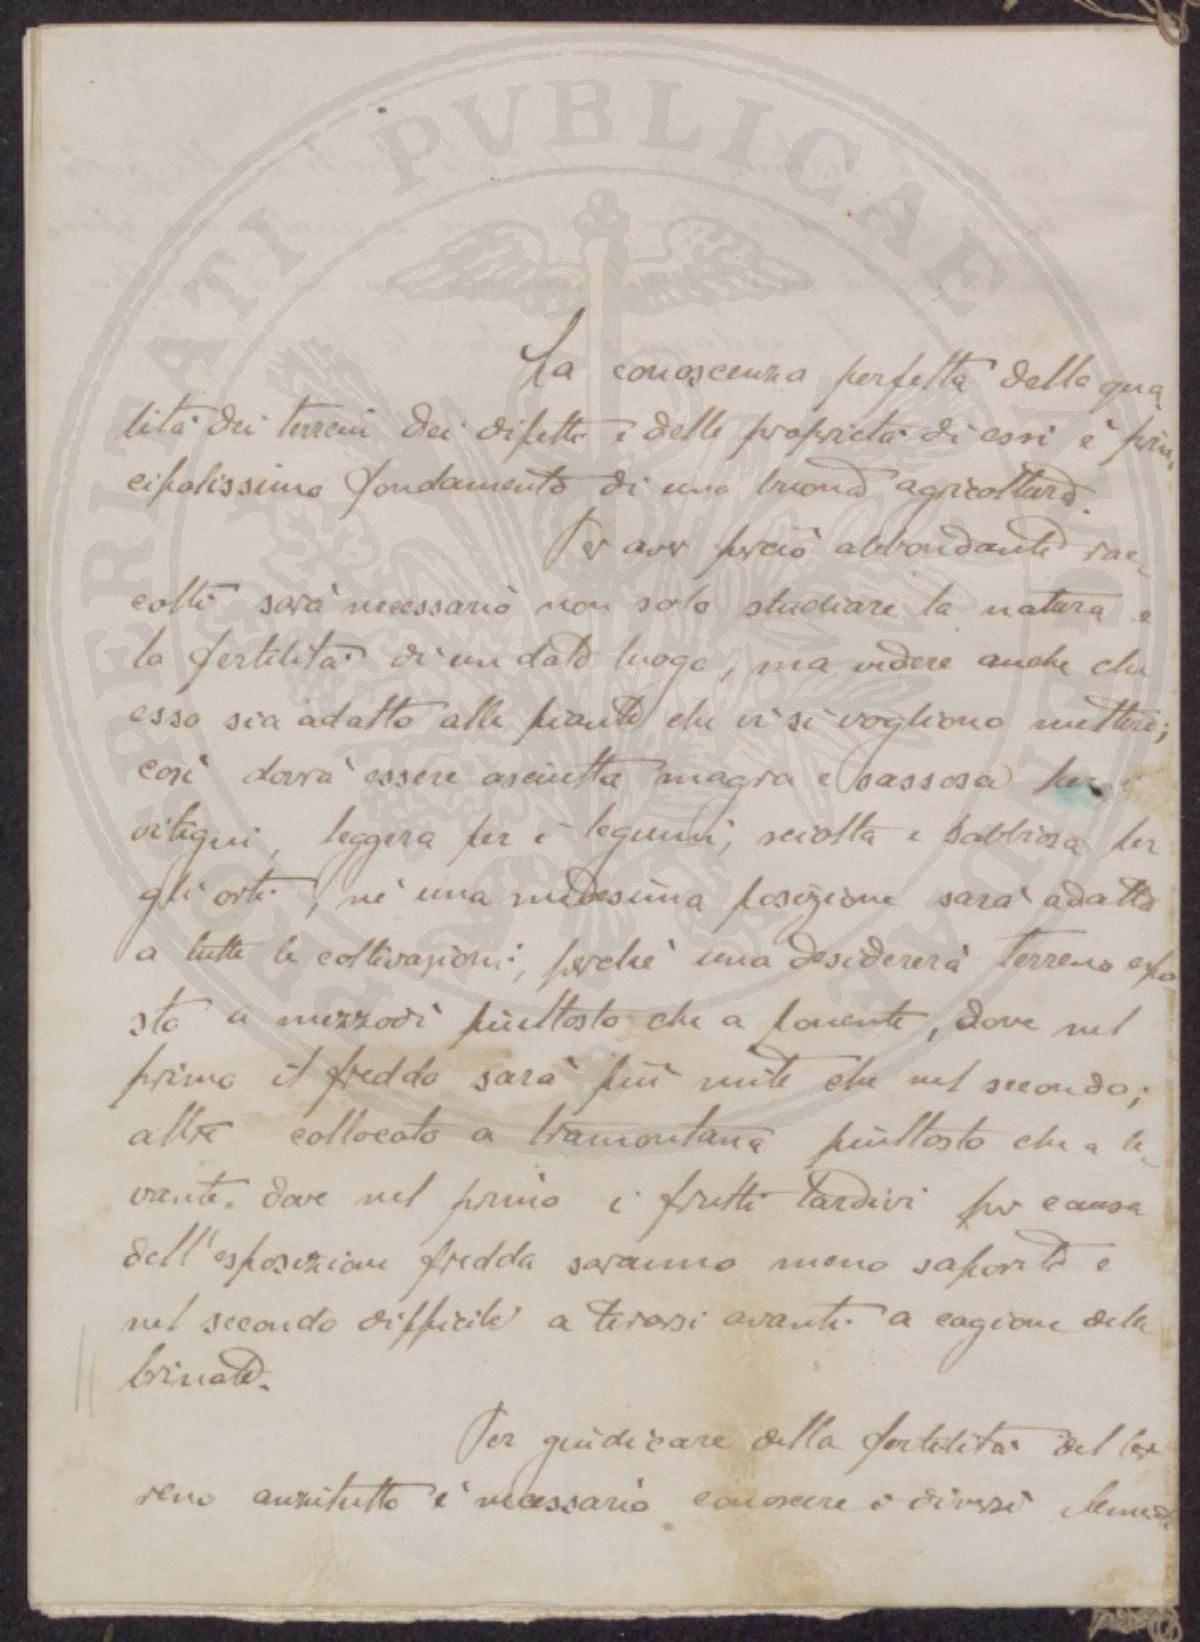 PROSPERITATI PVBLICAE AVGENDAE
La conoscenza perfetta della qua-
lità dei terreni dei difetti e delle proprietà di essi è prin-
cipalissimo fondamento di una buona agricoltura.
Per aver perciò abbondanti rac-
colti sarà necessario non solo studiare la natura e
la fertilità di un dato luogo, ma vedere anche che
esso sia adatto alle piante che vi si vogliono mettere;
così dovrà essere asciutta magra e sassosa per i
vitigni, leggera per i legumi, sciolta e sabbiosa per
gli orti, nè una medesima posizione sarà adatta
a tutte le coltivazioni, perchè una desidererà terreno espo
sto a mezzodì piuttosto che a ponente, dove nel
primo il freddo sarà più mite che nel secondo;
altre collocato a tramontana piuttosto che a le-
vante. dove nel primo i frutti tardivi per causa
dell'esposizione fredda saranno meno saporiti e
nel secondo difficili a tirarsi avanti a cagione delle
brinate.
Per giudicare della fertilità del ter
reno anzitutto è necessario conoscere i diversi elementi